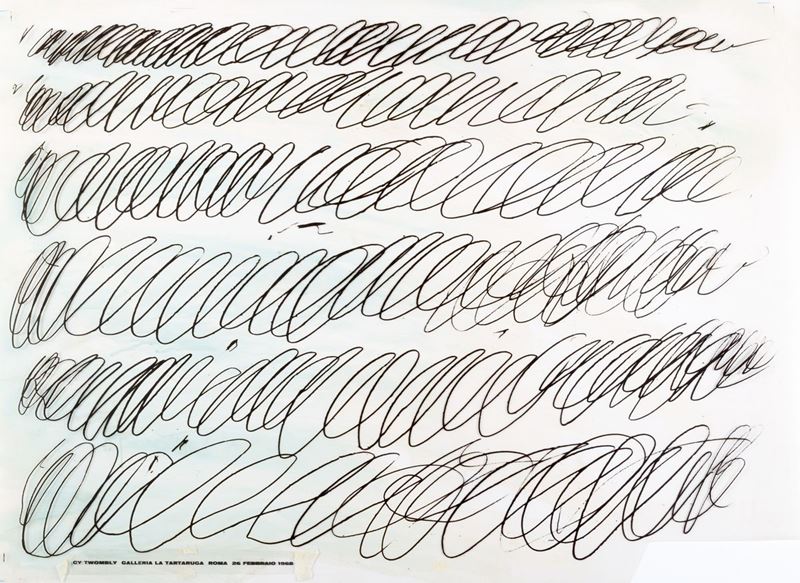 CY TWOMBLY GALLERIA LA TARTARUGA ROMA 26 FEBBRAIO 1968